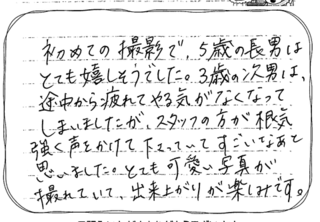 初めての撮影で、5歳の長男は
とても嬉しそうでした。3歳の次男は、
途中から疲れてやる気がなくなって
しまいましたが、スタッフの方が根気
強く声をかけて下さっていてすごいなあと
思いました。とても可愛い写真が
撮れていて、出来上がりが楽しみです。